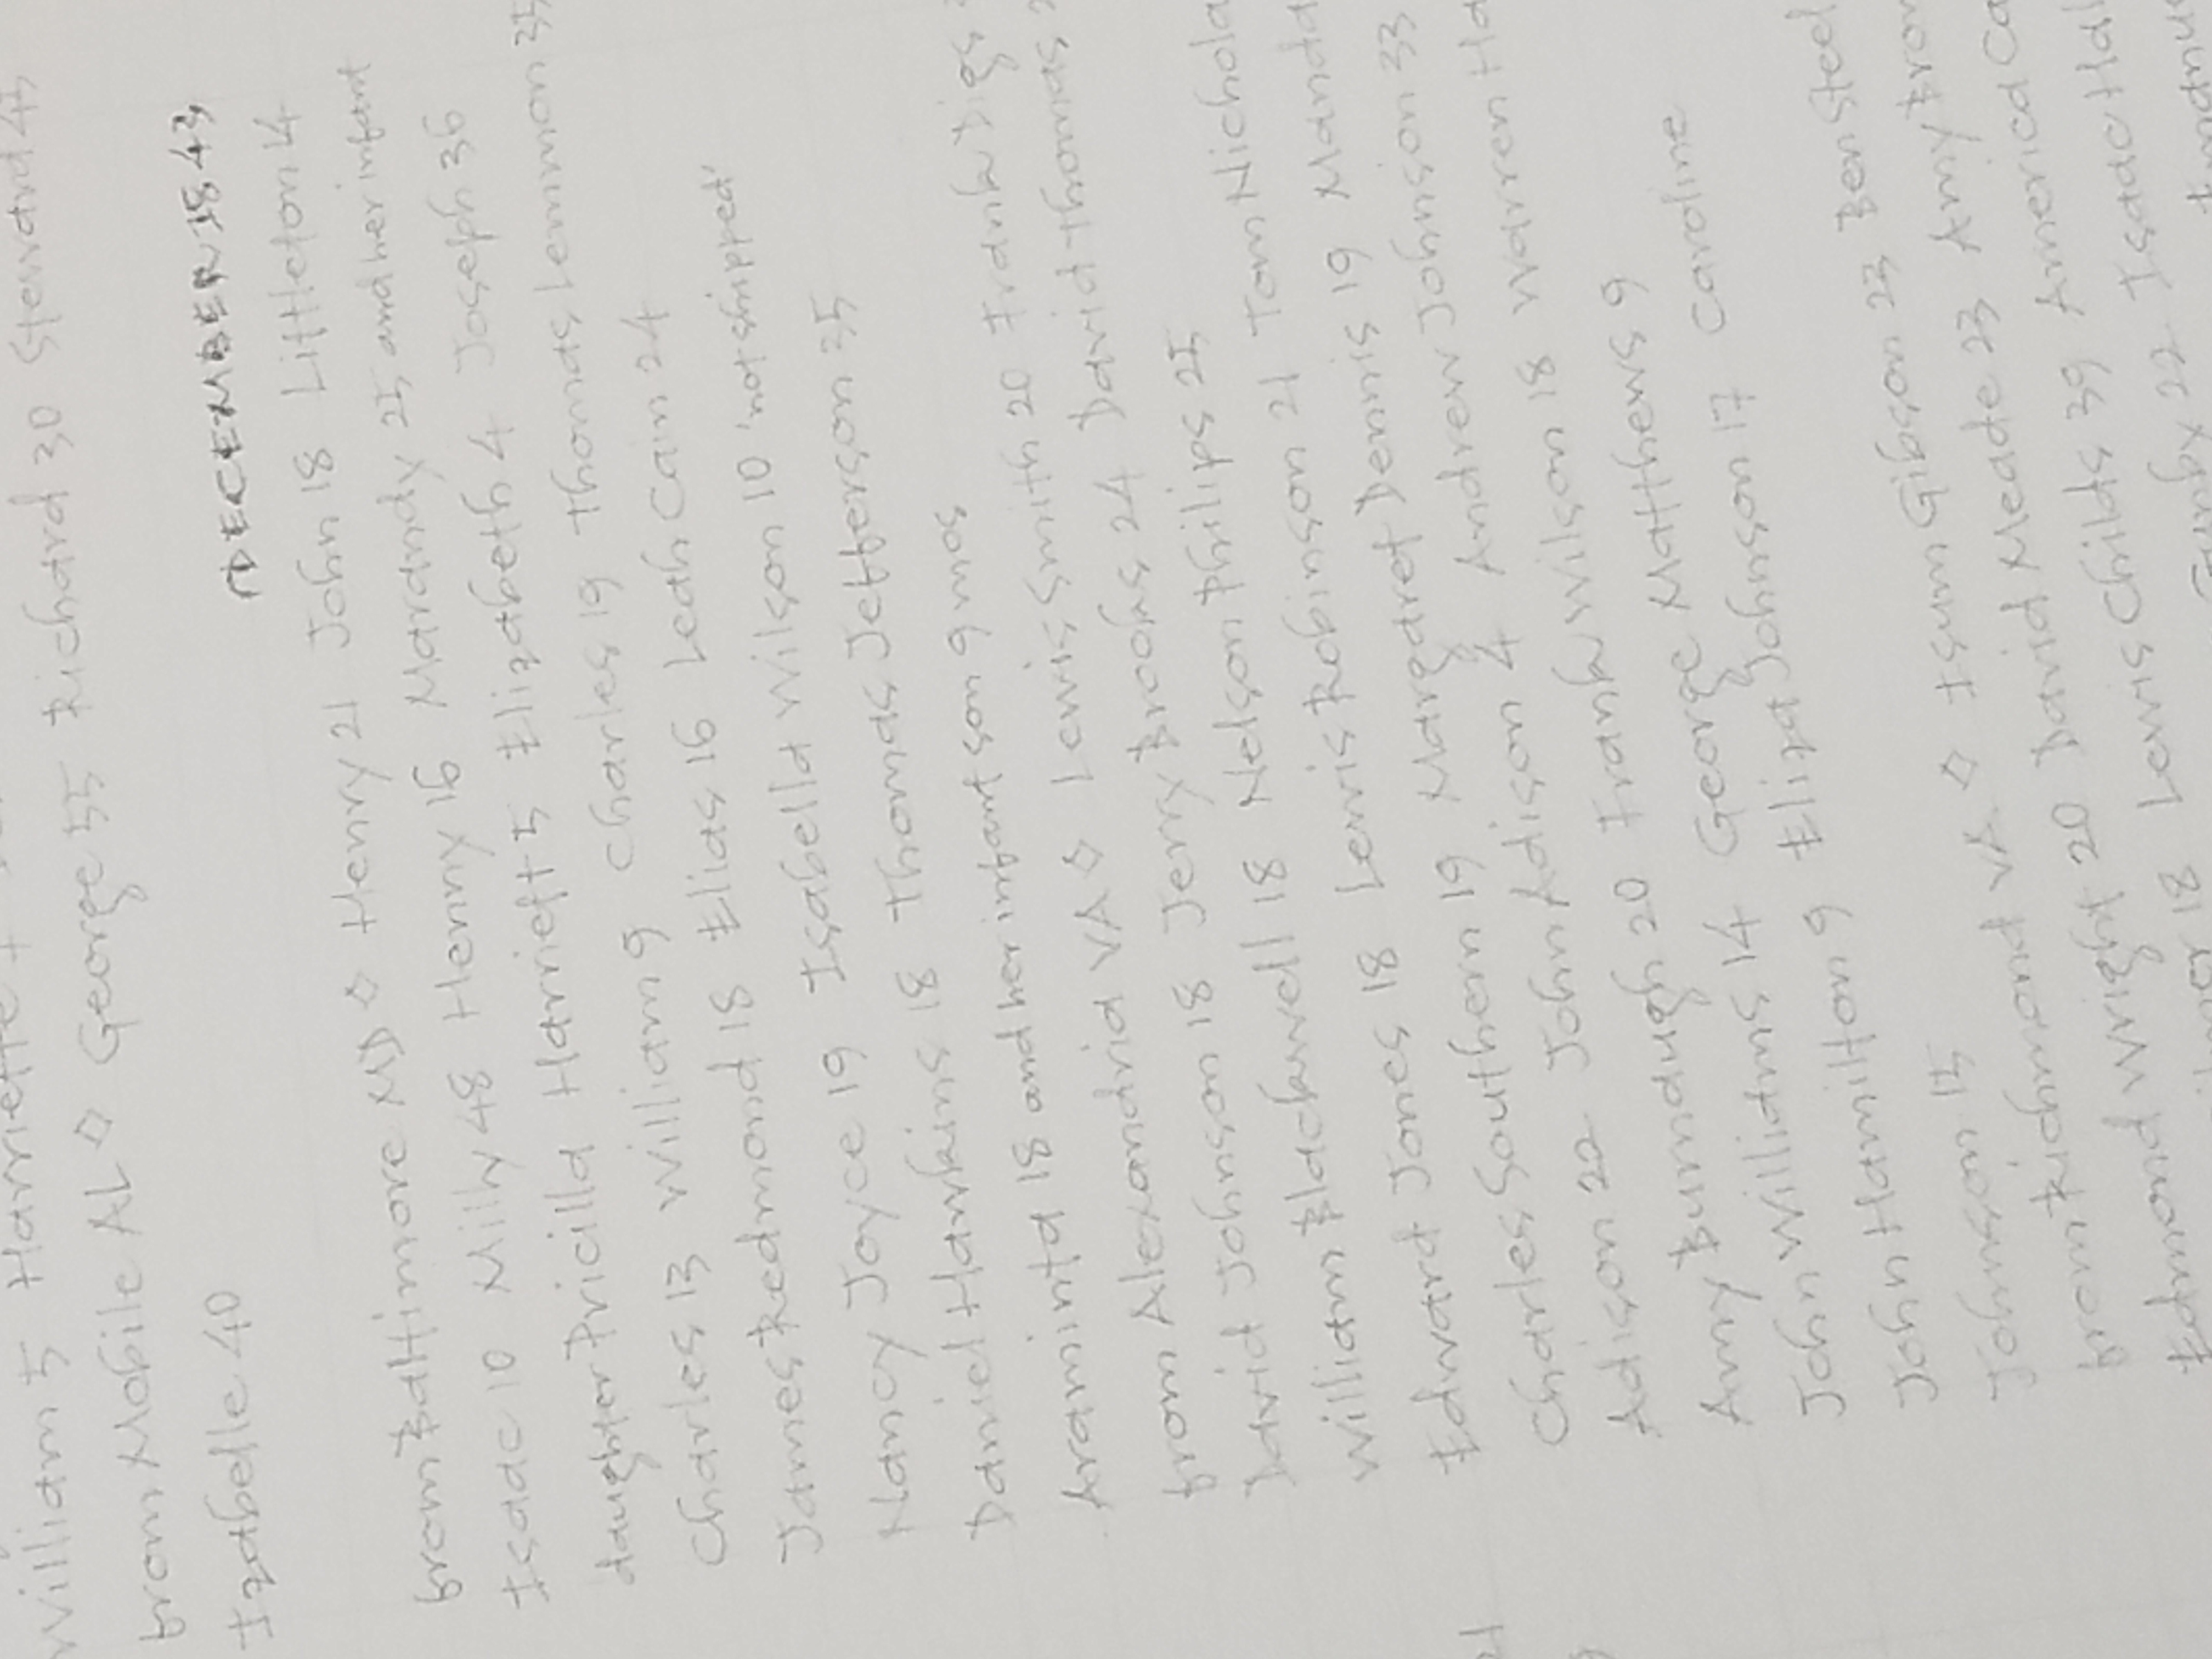 William 5 Harriette
from Mobile AL ◇ George 55 Richard 30 Steward 45
Izabelle 40
DECEMBER 1843
from Baltimore MD ◇ Henry 21 John 18 Littleton 14
Isaac 10 Milly 48 Henny 16 Marandy 25 and her infant
daughter Pricilla Harriett 5 Elizabeth 4 Joseph 36
Charles 13 William 9 Charles 19 Thomas Lemmon 35
James Redmond 18 Elias 16 Leah Cain 24
Nancy Joyce 19 Isabella Wilson 10 'not shipped'
Daniel Hawkins 18 Thomas Jefferson 35
Araminta 18 and her infant son 9 mos
from Alexandria VA ◇ Lewis Smith 20 Frank Digs
David Johnson 18 Jerry Brooks 24 David Thomas
William Blackwell 18 Nelson Philips 25
Edward Jones 18 Lewis Robinson 21 Tom Nichola
21
Charles Southern 19 Margaret Dennis 19 Manda
Adison 22 John Adison 4 Andrew Johnson 33
Amy Burnaugh 20 Frank Wilson 18 Warren Ha
John Williams 14 George Matthews 9
John Hamilton 9 Eliza Johnson 17 Caroline
Johnson 15
from Richmond VA ◇ Isum Gibson 23 Ben Steel
Edmond Wright 20 David Meade 23 Amy Brow
18 Lewis Childs 39 America Ca
22 Isaac Hal